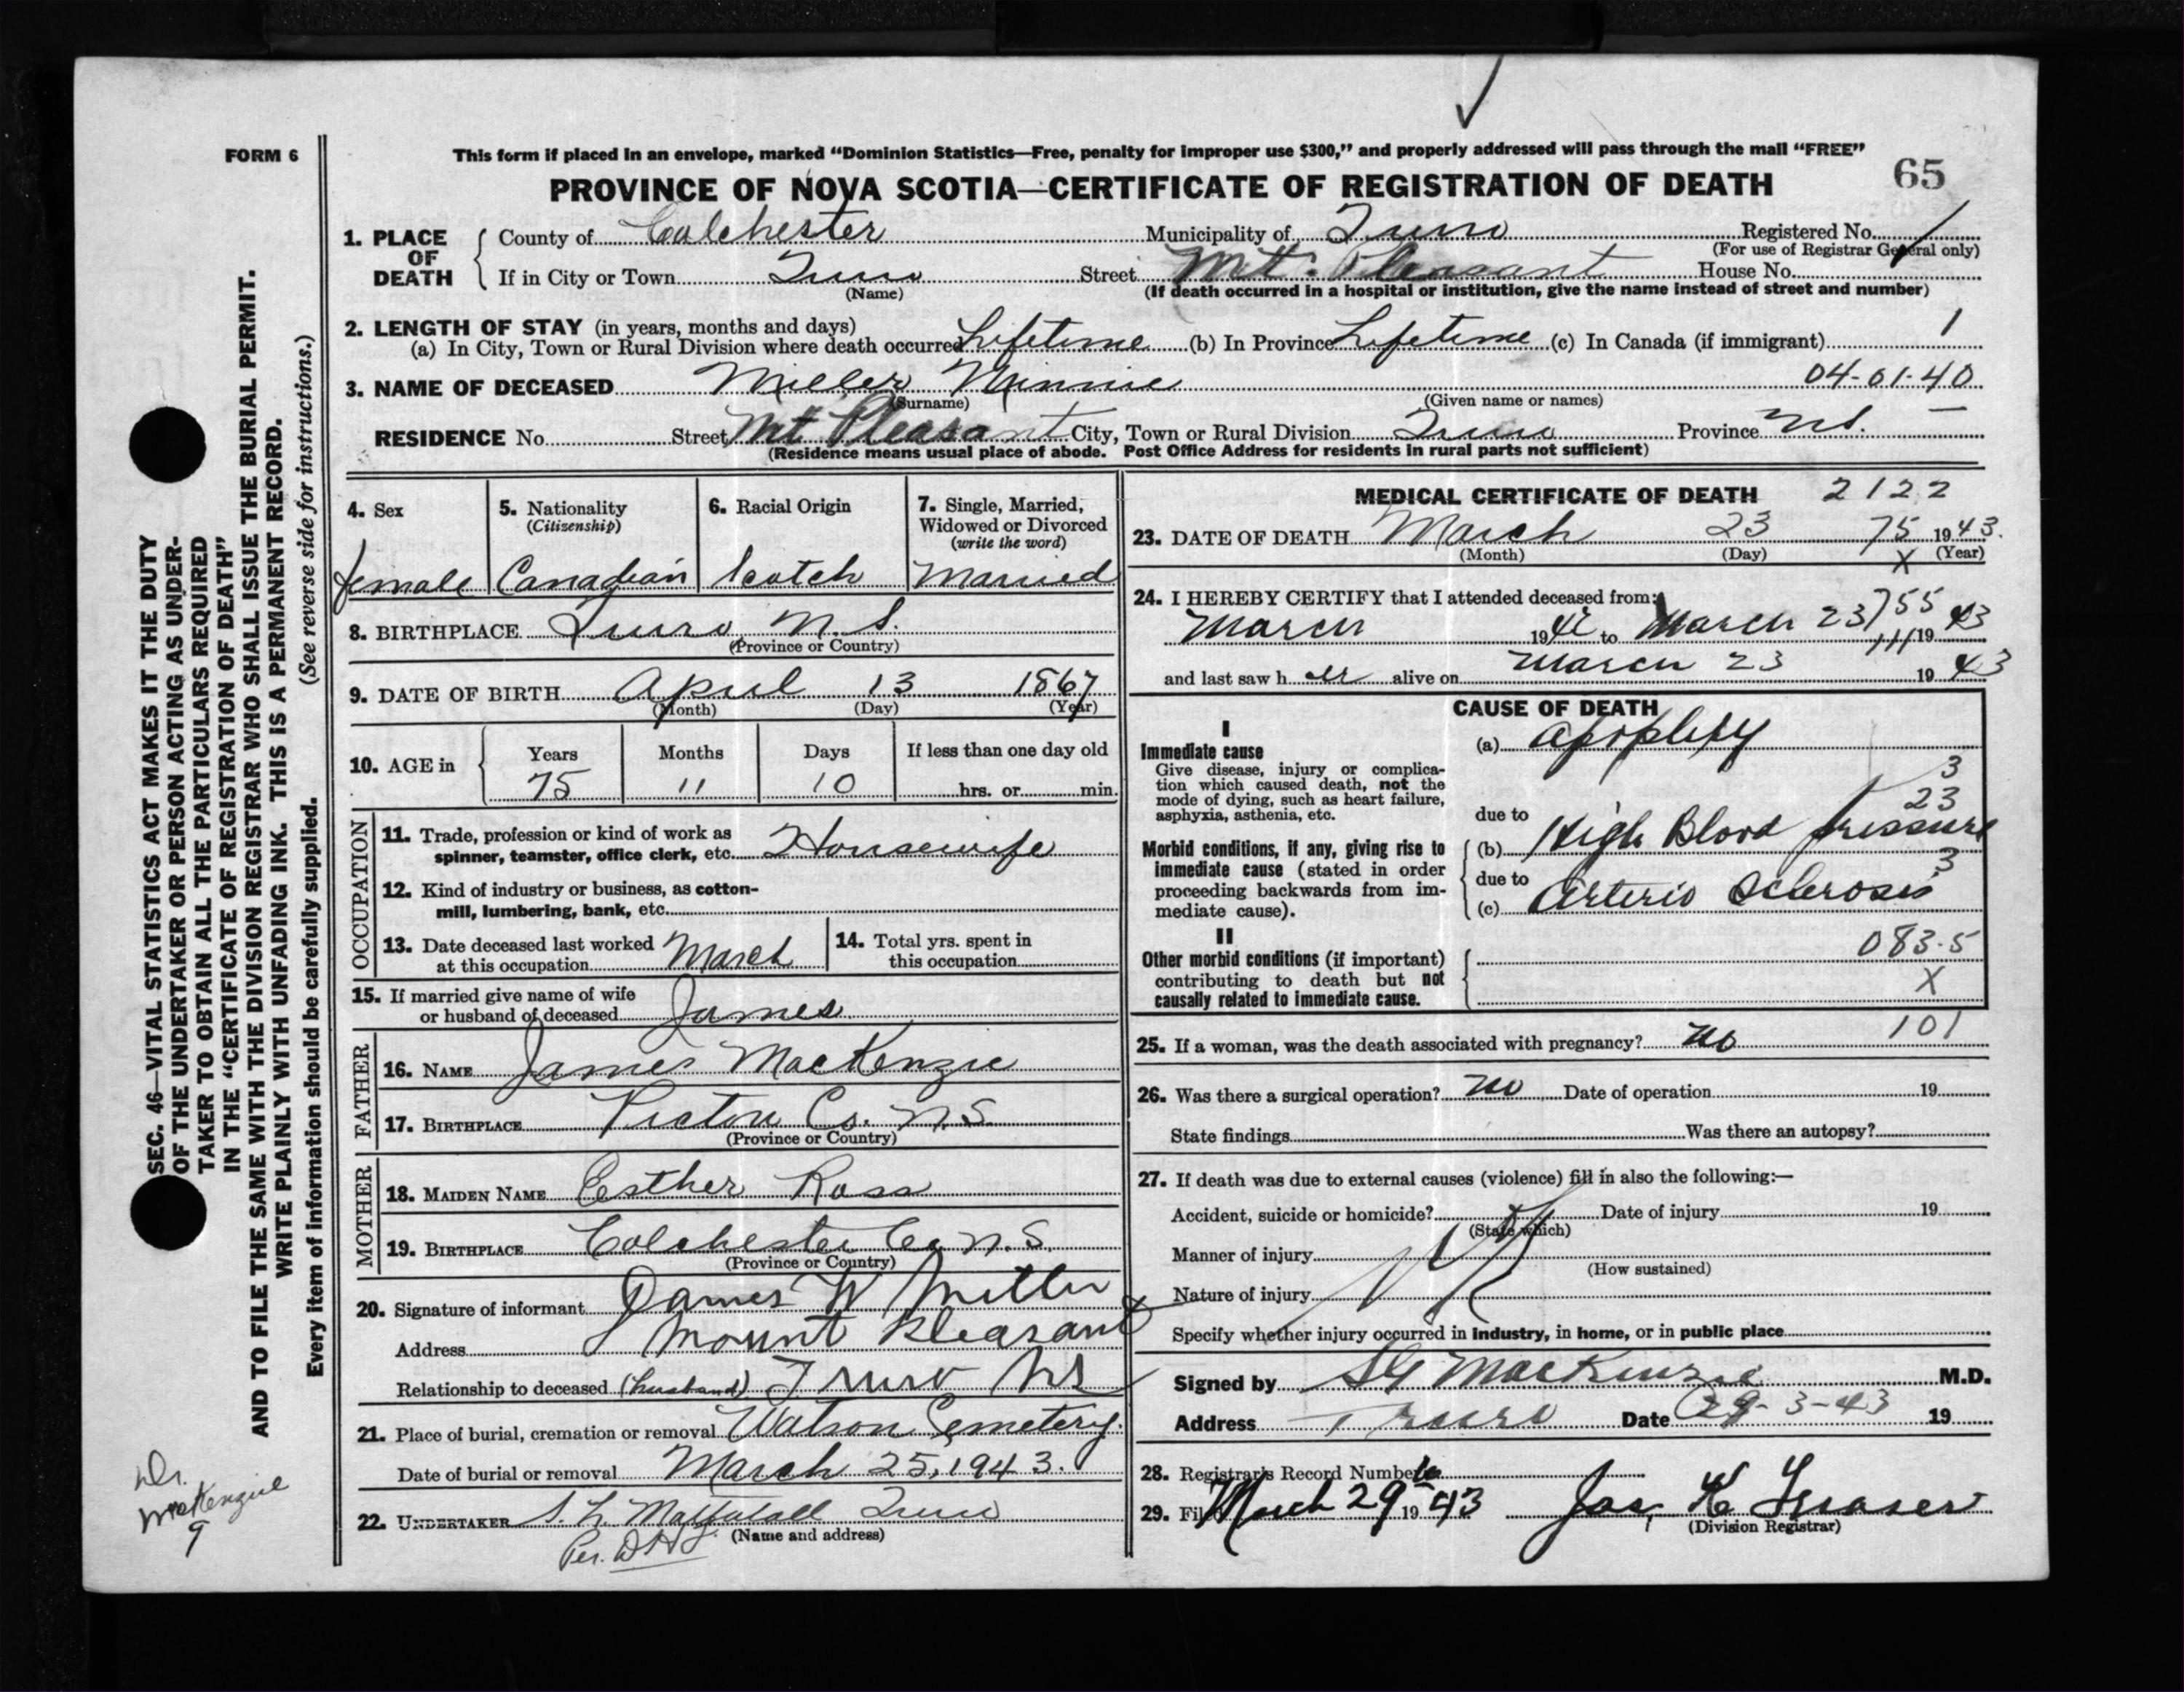 FORM 6
This form if placed in an envelope, marked “Dominion Statistics—Free, penalty for improper use $300,” and properly addressed will pass through the mail “FREE”
PROVINCE OF NOVA SCOTIA—CERTIFICATE OF REGISTRATION OF DEATH
65
1. PLACE OF DEATH
County of Colchester Municipality of Truro Registered No.
(For use of Registrar General only)
If in City or Town Truro Street Mt. Pleasant House No.
(Name) (If death occurred in a hospital or institution, give the name instead of street and number)
2. LENGTH OF STAY (in years, months and days)
(a) In City, Town or Rural Division where death occurred Lifetime (b) In Province Lifetime (c) In Canada (if immigrant) 1
3. NAME OF DECEASED Miller Minnie 04-01-40
(Surname) (Given name or names)
RESIDENCE No. Street Mt Pleasant City, Town or Rural Division Truro Province N.S. —
(Residence means usual place of abode. Post Office Address for residents in rural parts not sufficient)
4. Sex
female
5. Nationality
(Citizenship)
Canadian
6. Racial Origin
Scotch
7. Single, Married,
Widowed or Divorced
(write the word)
Married
8. BIRTHPLACE Truro N.S.
(Province or Country)
9. DATE OF BIRTH April 13 1867
(Month) (Day) (Year)
10. AGE in
Years Months Days If less than one day old
75 11 10 hrs. or min.
OCCUPATION
11. Trade, profession or kind of work as
spinner, teamster, office clerk, etc. Housewife
12. Kind of industry or business, as cotton-
mill, lumbering, bank, etc.
13. Date deceased last worked
at this occupation March
14. Total yrs. spent in
this occupation
15. If married give name of wife
or husband of deceased James
FATHER
16. NAME James MacKenzie
17. BIRTHPLACE Pictou Co. N.S.
(Province or Country)
MOTHER
18. MAIDEN NAME Esther Ross
19. BIRTHPLACE Colchester Co N.S.
(Province or Country)
20. Signature of informant James W Miller
Address Mount Pleasant
Relationship to deceased (husband) Truro NS
21. Place of burial, cremation or removal Watson Cemetery.
Date of burial or removal March 25, 1943.
22. UNDERTAKER S. L. Mattatall Truro
(Name and address)
Per.
MEDICAL CERTIFICATE OF DEATH 2122
23. DATE OF DEATH March 23 75 1943.
(Month) (Day) X (Year)
24. I HEREBY CERTIFY that I attended deceased from:
755
March 19 to March 23 1943
and last saw her alive on March 23 1943
CAUSE OF DEATH
I
Immediate cause
Give disease, injury or complica-
tion which caused death, not the
mode of dying, such as heart failure,
asphyxia, asthenia, etc.
(a) Apoplexy
3
23
due to
Morbid conditions, if any, giving rise to
immediate cause (stated in order
proceeding backwards from im-
mediate cause).
(b) High Blood Pressure
3
due to
(c) Arterio Sclerosis
II
Other morbid conditions (if important)
contributing to death but not
causally related to immediate cause.
083.5
X
101
25. If a woman, was the death associated with pregnancy? No
26. Was there a surgical operation? No Date of operation 19
State findings Was there an autopsy?
27. If death was due to external causes (violence) fill in also the following:—
Accident, suicide or homicide? Date of injury 19
(State which)
Manner of injury
(How sustained)
Nature of injury
Specify whether injury occurred in industry, in home, or in public place
Signed by MacKenzie M.D.
Address Truro Date 29-3-43 19
28. Registrar's Record Number
29. Filed March 29th 1943 Jas. K Fraser
(Division Registrar)
SEC. 46—VITAL STATISTICS ACT MAKES IT THE DUTY
OF THE UNDERTAKER OR PERSON ACTING AS UNDER-
TAKER TO OBTAIN ALL THE PARTICULARS REQUIRED
IN THE “CERTIFICATE OF REGISTRATION OF DEATH”
AND TO FILE THE SAME WITH THE DIVISION REGISTRAR WHO SHALL ISSUE THE BURIAL PERMIT.
WRITE PLAINLY WITH UNFADING INK. THIS IS A PERMANENT RECORD.
Every item of information should be carefully supplied. (See reverse side for instructions.)
Dr.
MacKenzie
9